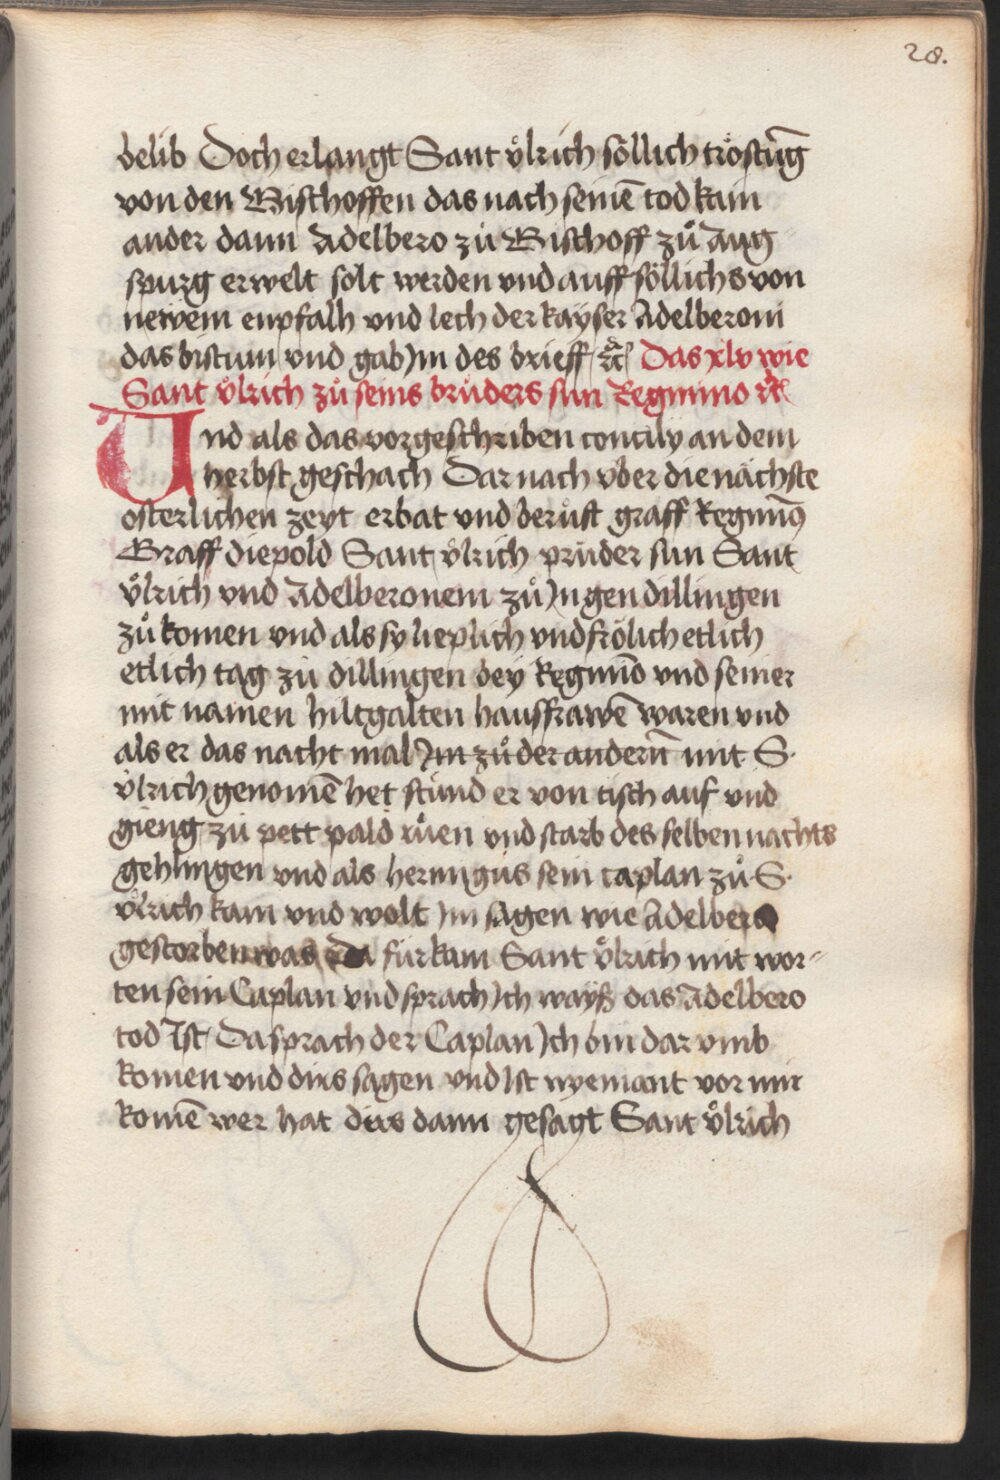 28.
belib Doch erlangt Sant vͦlrich söllich tröstūg
von den Bischoffen das nach seinē tod kain
ander dann Adelbero zů Bischoff zů Aug
spurg erwelt solt werden vnd auff söllichs von
newem enpfalh vnd lech der kayser Adelberoni
das bistum vnd gab im des brieff ⁊c̄ Das xlv wie
Sant vͦlrich zů seins brůders sun Regnino ⁊c̄
Vnd als das vorgeschriben concily an dem
herbst geschach Dar nach vber die nächste
osterlichen zeyt erbat vnd berůft graff Regniūs
Graff diepold Sant vͦlrich průder sun Sant
vͦlrich vnd Adelberonem zů Jn gen dillingen
zů komen vnd als sy lieplich vnd frölich etlich
etlich tag zů dillingen bey Regninō vnd seiner
mit namen hiltgalten haussfrawē waren vnd
als er das nacht mal Jm zů der andern̄ mit S.
vͦlrich genomē het stůnd er von tisch auf vnd
gieng zů pett pald růen vnd starb des selben nachts
gehlingen vnd als heringus sein caplan zů S.
vͦlrich kam vnd wolt im sagen wie Adelbero
gestorben was da fůrkam Sant vͦlrich mit wor-
ten sein Caplan vnd sprach Jch wayß das Adelbero
tod Jst Da sprach der Caplan Jch bin dar vmb
komen vnd dirs sagen vnd Jst nyemant vor mir
komē wer hat dirs dann gesagt Sant vͦlrich